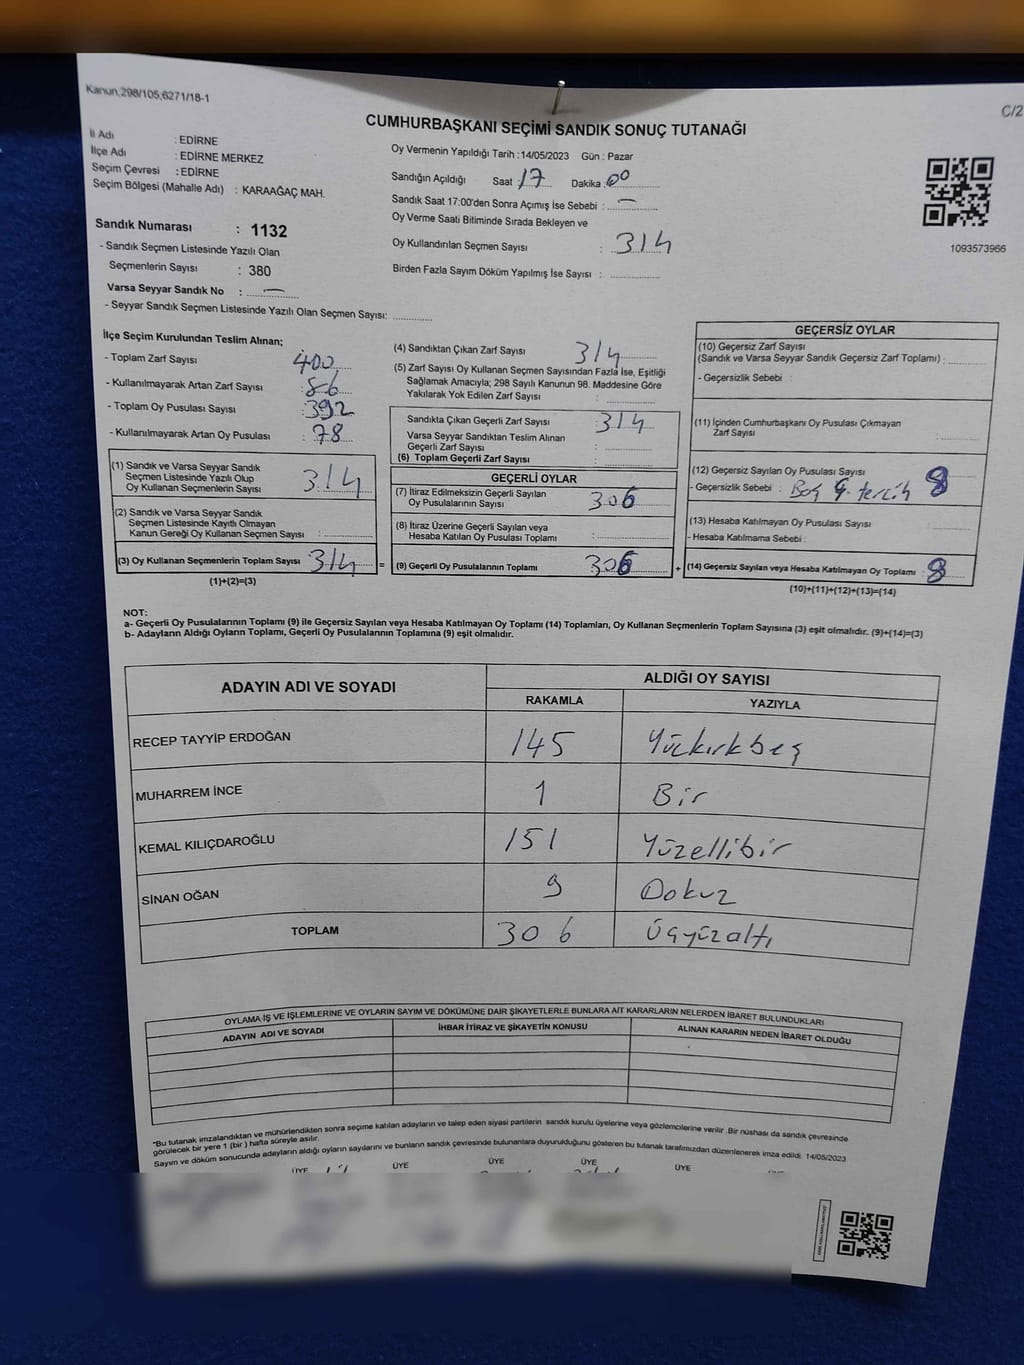 Kanun,298/105,6271/18-1
C/2
CUMHURBAŞKANI SEÇİMİ SANDIK SONUÇ TUTANAĞI
İl Adı : EDİRNE
İlçe Adı : EDİRNE MERKEZ
Seçim Çevresi : EDİRNE
Seçim Bölgesi (Mahalle Adı) : KARAAĞAÇ MAH.
Sandık Numarası : 1132
- Sandık Seçmen Listesinde Yazılı Olan
Seçmenlerin Sayısı : 380
Varsa Seyyar Sandık No : —
- Seyyar Sandık Seçmen Listesinde Yazılı Olan Seçmen Sayısı:
Oy Vermenin Yapıldığı Tarih : 14/05/2023 Gün : Pazar
Sandığın Açıldığı Saat 17 Dakika 00
Sandık Saat 17:00'den Sonra Açımış İse Sebebi : —
Oy Verme Saati Bitiminde Sırada Bekleyen ve
Oy Kullandırılan Seçmen Sayısı : 314
Birden Fazla Sayım Döküm Yapılmış İse Sayısı :
1093573966
İlçe Seçim Kurulundan Teslim Alınan;
- Toplam Zarf Sayısı : 400
- Kullanılmayarak Artan Zarf Sayısı : 86
- Toplam Oy Pusulası Sayısı : 392
- Kullanılmayarak Artan Oy Pusulası : 78
(1) Sandık ve Varsa Seyyar Sandık
Seçmen Listesinde Yazılı Olup
Oy Kullanan Seçmenlerin Sayısı : 314
(2) Sandık ve Varsa Seyyar Sandık
Seçmen Listesinde Kayıtlı Olmayan
Kanun Gereği Oy Kullanan Seçmen Sayısı :
(3) Oy Kullanan Seçmenlerin Toplam Sayısı 314
(1)+(2)=(3)
=
(4) Sandıktan Çıkan Zarf Sayısı : 314
(5) Zarf Sayısı Oy Kullanan Seçmen Sayısından Fazla İse, Eşitliği
Sağlamak Amacıyla; 298 Sayılı Kanunun 98. Maddesine Göre
Yakılarak Yok Edilen Zarf Sayısı :
Sandıkta Çıkan Geçerli Zarf Sayısı : 314
Varsa Seyyar Sandıktan Teslim Alınan
Geçerli Zarf Sayısı :
(6) Toplam Geçerli Zarf Sayısı :
GEÇERLİ OYLAR
(7) İtiraz Edilmeksizin Geçerli Sayılan
Oy Pusulalarının Sayısı : 306
(8) İtiraz Üzerine Geçerli Sayılan veya
Hesaba Katılan Oy Pusulası Toplamı :
(9) Geçerli Oy Pusulalarının Toplamı : 306
+
GEÇERSİZ OYLAR
(10) Geçersiz Zarf Sayısı
(Sandık ve Varsa Seyyar Sandık Geçersiz Zarf Toplamı) :
- Geçersizlik Sebebi :
(11) İçinden Cumhurbaşkanı Oy Pusulası Çıkmayan
Zarf Sayısı :
(12) Geçersiz Sayılan Oy Pusulası Sayısı : 8
- Geçersizlik Sebebi : Boş Ç. tercih
(13) Hesaba Katılmayan Oy Pusulası Sayısı :
- Hesaba Katılmama Sebebi :
(14) Geçersiz Sayılan veya Hesaba Katılmayan Oy Toplamı : 8
(10)+(11)+(12)+(13)=(14)
NOT:
a- Geçerli Oy Pusulalarının Toplamı (9) ile Geçersiz Sayılan veya Hesaba Katılmayan Oy Toplamı (14) Toplamları, Oy Kullanan Seçmenlerin Toplam Sayısına (3) eşit olmalıdır. (9)+(14)=(3)
b- Adayların Aldığı Oyların Toplamı, Geçerli Oy Pusulalarının Toplamına (9) eşit olmalıdır.
ADAYIN ADI VE SOYADI ALDIĞI OY SAYISI
RAKAMLA YAZIYLA
RECEP TAYYİP ERDOĞAN 145 Yüzkırkbeş
MUHARREM İNCE 1 Bir
KEMAL KILIÇDAROĞLU 151 Yüzellibir
SİNAN OĞAN 9 Dokuz
TOPLAM 306 Üçyüzaltı
OYLAMA İŞ VE İŞLEMLERİNE VE OYLARIN SAYIM VE DÖKÜMÜNE DAİR ŞİKAYETLERLE BUNLARA AİT KARARLARIN NELERDEN İBARET BULUNDUKLARI
ADAYIN ADI VE SOYADI İHBAR İTİRAZ VE ŞİKAYETİN KONUSU ALINAN KARARIN NEDEN İBARET OLDUĞU
*Bu tutanak imzalandıktan ve mühürlendikten sonra seçime katılan adayların ve talep eden siyasi partilerin sandık kurulu üyelerine veya gözlemcilerine verilir .Bir nüshası da sandık çevresinde
görülecek bir yere 1 (bir ) hafta süreyle asılır.
Sayım ve döküm sonucunda adayların aldığı oyların sayılarını ve bunların sandık çevresinde bulunanlara duyurulduğunu gösteren bu tutanak tarafımızdan düzenlenerek imza edildi. 14/05/2023
ÜYE ÜYE ÜYE ÜYE ÜYE